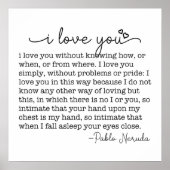 i love you
i love you without knowing how, or
when, or from where. I love you
simply, without problems or pride: I love
you in this way because I do not
know any other way of loving but
this, in which there is no I or you, so
intimate that your hand upon my
chest is my hand, so intimate that
when I fall asleep your eyes close.
-Pablo Neruda